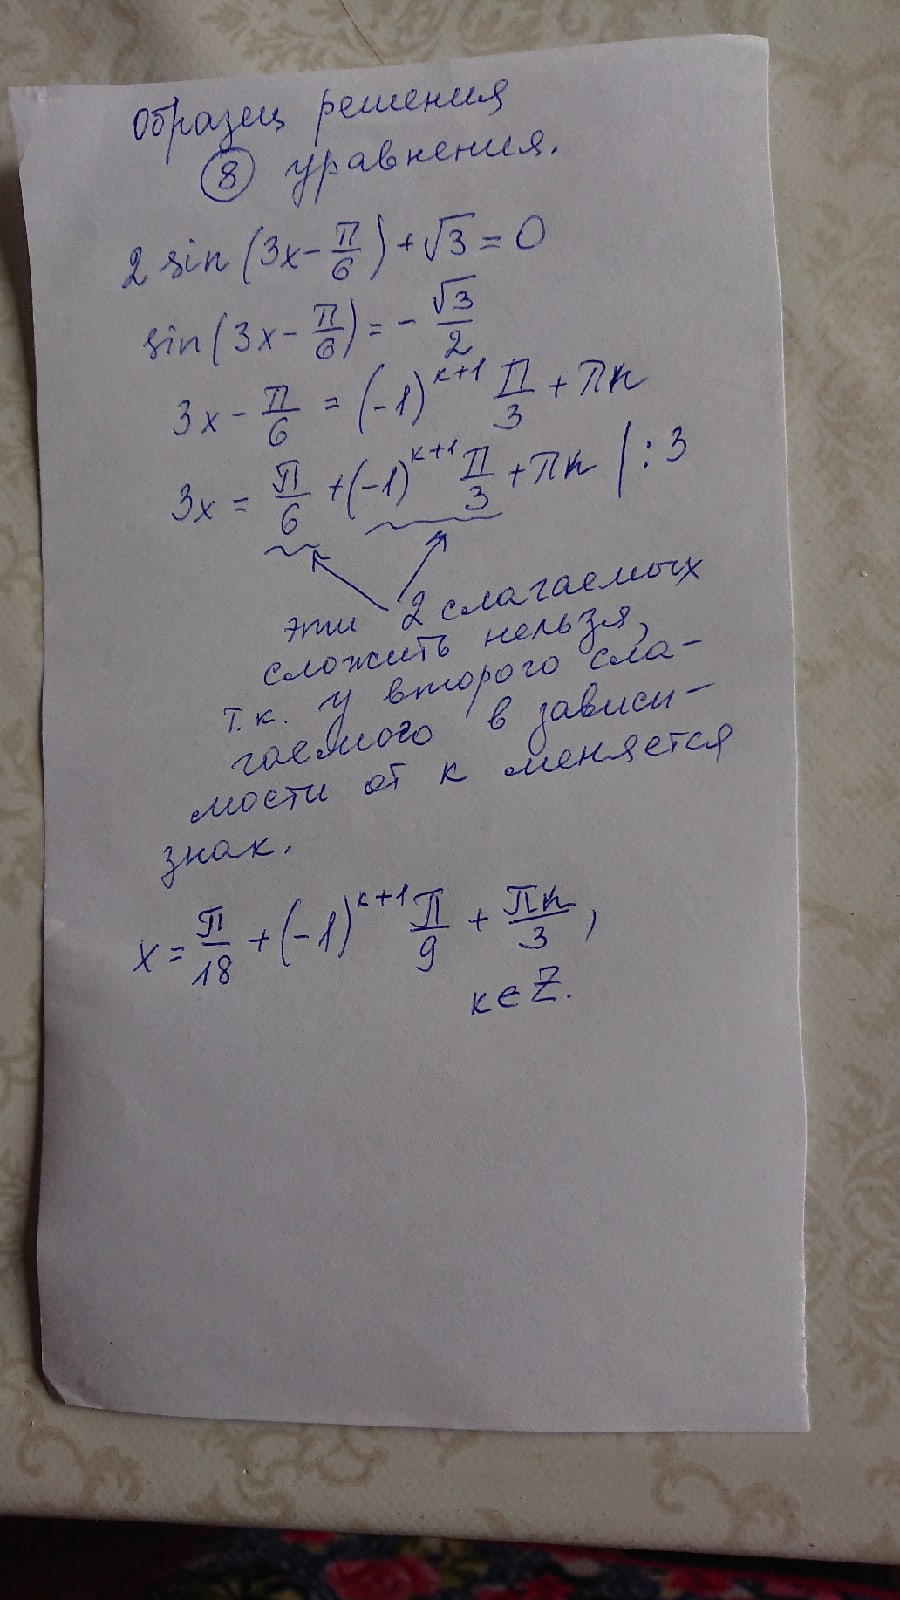 Образец решения
⑧ уравнения.
2 sin (3x - π/6) + √3 = 0
sin (3x - π/6) = - √3/2
3x - π/6 = (-1)^(к+1) π/3 + πк
3x = π/6 + (-1)^(к+1) π/3 + πк | : 3
эти 2 слагаемых
сложить нельзя,
т.к. у второго сла-
гаемого в зависи-
мости от к меняется
знак.
x = π/18 + (-1)^(к+1) π/9 + πк/3,
к ∈ Z.